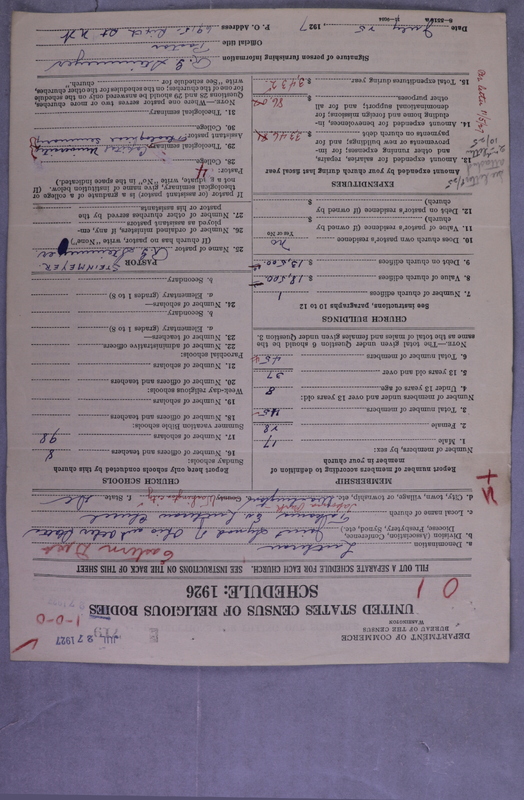 DEPARTMENT OF COMMERCE
BUREAU OF THE CENSUS
WASHINGTON
JUL 27 1927
1-0-0
UNITED STATES CENSUS OF RELIGIOUS BODIES
SCHEDULE: 1926
0 1
FILL OUT A SEPARATE SCHEDULE FOR EACH CHURCH. SEE INSTRUCTIONS ON THE BACK OF THIS SHEET
a. Denomination Lutheran
b. Division (Association, Conference, Diocese, Presbytery, Synod, etc.) Joint Synod of Ohio and other States
Eastern Dist
c. Local name of church Ev. Lutheran Church
d. City, town, village, or township, etc. Washington County Washington City State D.C.
MEMBERSHIP
Report number of members according to definition of member in your church
Number of members, by sex:
1. Male 17
2. Female 28
3. Total number of members 45
Number of members under and over 13 years old:
4. Under 13 years of age 8
5. 13 years old and over 37
6. Total number of members 45
NOTE.—The total given under Question 6 should be the same as the total of males and females given under Question 3.
CHURCH BUILDINGS
See instructions, paragraphs 10 to 12
7. Number of church edifices 1
8. Value of church edifices $ 18,500
9. Debt on church edifices $ 13,500
10. Does church own pastor's residence no
Yes or No
11. Value of pastor's residence (if owned by church) $
12. Debt on pastor's residence (if owned by church) $
EXPENDITURES
Amount expended by your church during last fiscal year
13. Amount expended for salaries, repairs, and other running expenses; for improvements or new buildings; and payments on church debt $
14. Amount expended for benevolences, including home and foreign missions; for denominational support; and for all other purposes $
15. Total expenditures during year $
CHURCH SCHOOLS
Report here only schools conducted by this church
Sunday Schools:
16. Number of officers and teachers 8
17. Number of scholars 98
Summer vacation Bible schools:
18. Number of officers and teachers
19. Number of scholars
Week-day religious schools:
20. Number of officers and teachers
21. Number of scholars
Parochial schools:
22. Number of administrative officers
23. Number of teachers—
a. Elementary (grades 1 to 8)
b. Secondary
24. Number of scholars—
a. Elementary (grades 1 to 8)
b. Secondary
PASTOR
STEINMEYER
25. Name of pastor
(If church has no pastor, write "None")
26. Number of ordained ministers, if any, employed as assistants to pastor 0
27. Number of other churches served by the pastor or his assistants
If pastor (or assistant pastor) is a graduate of a college or theological seminary, give name of institution below. (If not a graduate, write "No" in the space indicated.)
Pastor:
28. College
29. Theological seminary
Assistant Pastor:
30. College
31. Theological seminary
NOTE.—Where one pastor serves two or more churches, Questions 28 and 29 should be answered only on the schedule for one of the churches; on the schedule for the other churches, write "See schedule for church."
Signature of person furnishing information
Official title Pastor
P. O. Address
Date July 25 1927